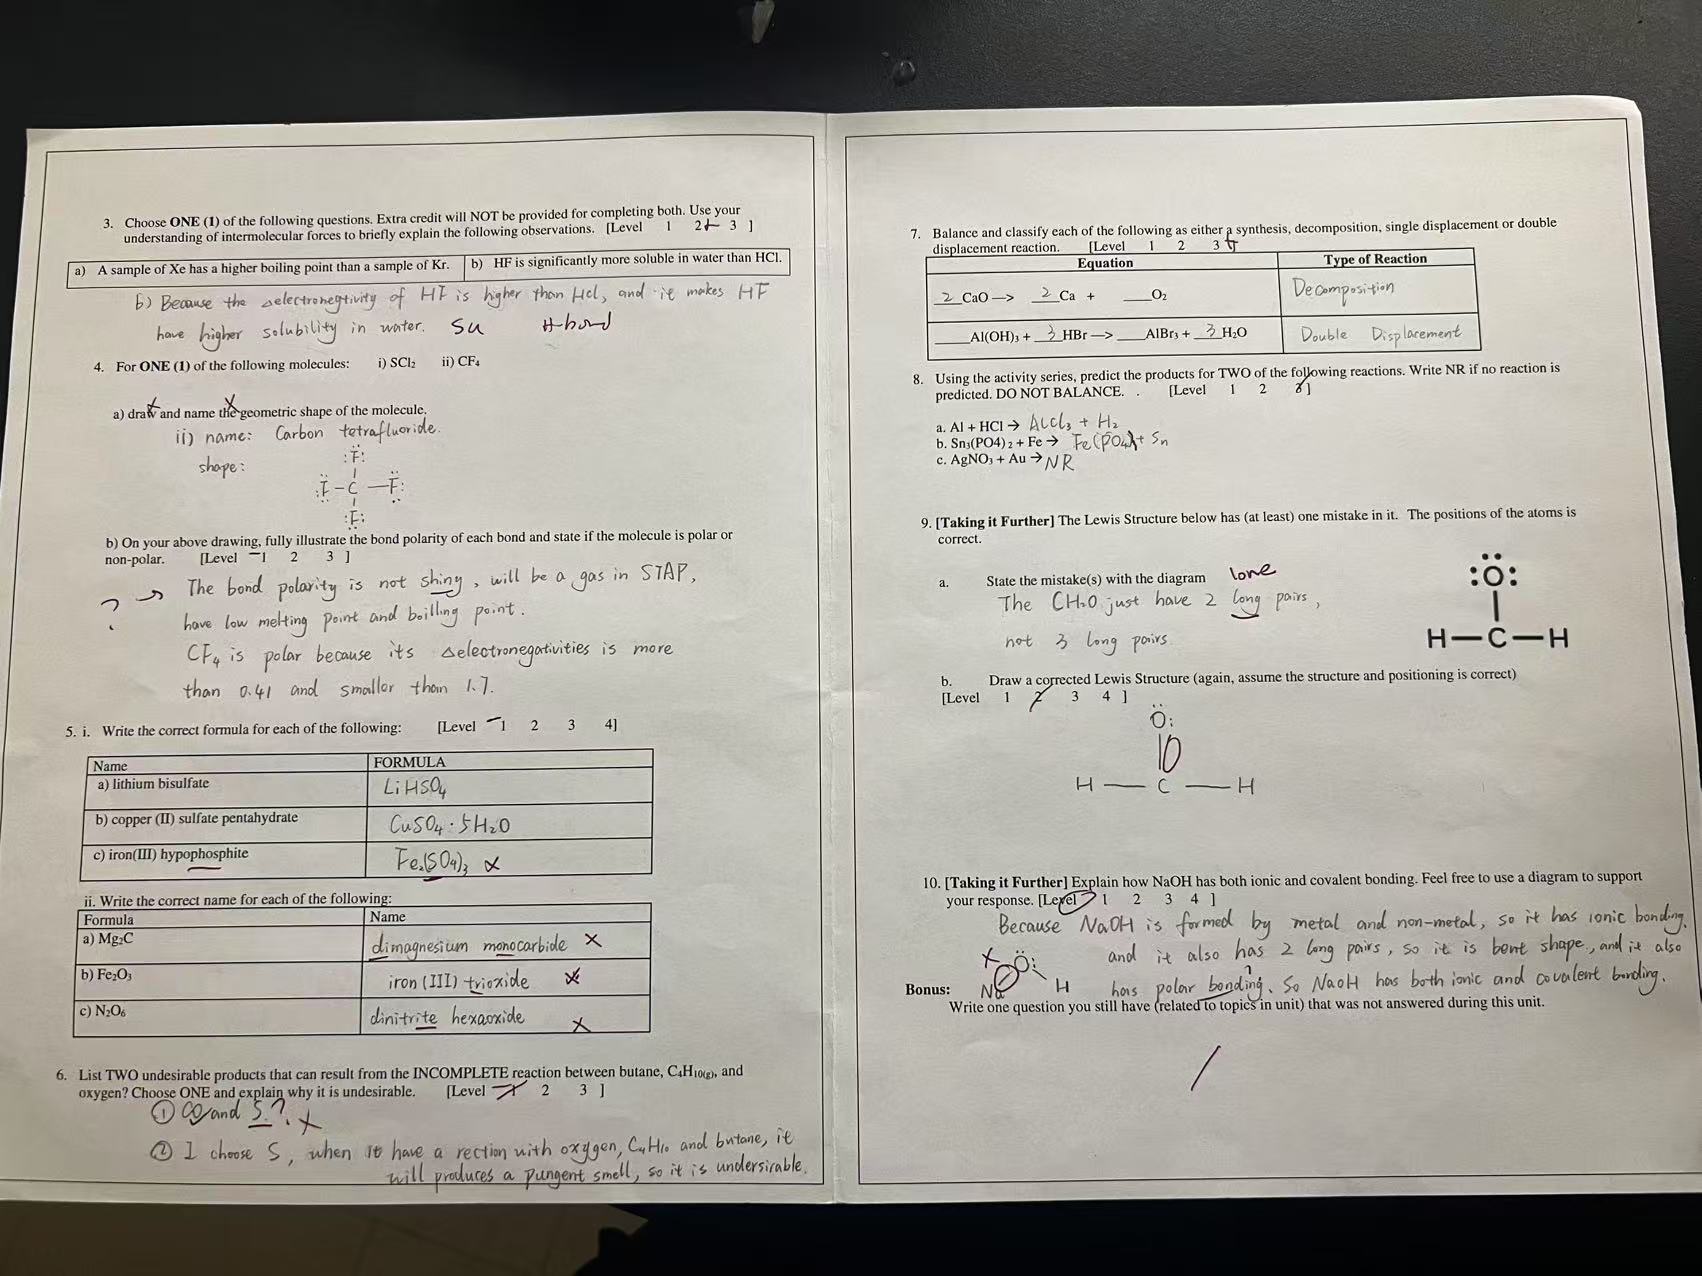 3. Choose ONE (1) of the following questions. Extra credit will NOT be provided for completing both. Use your
understanding of intermolecular forces to briefly explain the following observations. [Level 1 2+ 3 ]
a) A sample of Xe has a higher boiling point than a sample of Kr. b) HF is significantly more soluble in water than HCl.
b) Because the △electronegtivity of HF is higher than Hcl, and it makes HF
have higher solubility in water. H-bond
4. For ONE (1) of the following molecules: i) SCl₂ ii) CF₄
a) draw and name the geometric shape of the molecule.
ii) name: Carbon tetrafluoride.
shape:
:F:
:F-C-F:
:F:
b) On your above drawing, fully illustrate the bond polarity of each bond and state if the molecule is polar or
non-polar. [Level -1 2 3 ]
? → The bond polarity is not shiny, will be a gas in STAP,
have low melting point and boilling point.
CF₄ is polar because its △electronegativities is more
than 0.41 and smaller than 1.7.
5. i. Write the correct formula for each of the following: [Level -1 2 3 4]
Name FORMULA
a) lithium bisulfate LiHSO₄
b) copper (II) sulfate pentahydrate CuSO₄·5H₂O
c) iron(III) hypophosphite Fe₂(SO₄)₃ x
ii. Write the correct name for each of the following:
Formula Name
a) Mg₂C dimagnesium monocarbide x
b) Fe₂O₃ iron (III) trioxide x
c) N₂O₆ dinitrite hexaoxide x
6. List TWO undesirable products that can result from the INCOMPLETE reaction between butane, C₄H₁₀(g), and
oxygen? Choose ONE and explain why it is undesirable. [Level -1 2 3 ]
① CO and S.? x
② I choose S, when it have a rection with oxygen, C₄H₁₀ and butane, it
will produces a pungent smell, so it is undersirable.
7. Balance and classify each of the following as either a synthesis, decomposition, single displacement or double
displacement reaction. [Level 1 2 3+ ]
Equation Type of Reaction
2 CaO —> 2 Ca + ___O₂ Decomposition
___Al(OH)₃ + 3 HBr —> ___AlBr₃ + 3 H₂O Double Displacement
8. Using the activity series, predict the products for TWO of the following reactions. Write NR if no reaction is
predicted. DO NOT BALANCE. . [Level 1 2 3 ]
a. Al + HCl → AlCl₃ + H₂
b. Sn₃(PO4)₂ + Fe → Fe(PO₄) + Sn
c. AgNO₃ + Au → NR
9. [Taking it Further] The Lewis Structure below has (at least) one mistake in it. The positions of the atoms is
correct.
a. State the mistake(s) with the diagram lone
The CH₂O just have 2 long pairs,
not 3 long pairs.
:O:
H—C—H
b. Draw a corrected Lewis Structure (again, assume the structure and positioning is correct)
[Level 1 2 3 4 ]
O:
H — C — H
10. [Taking it Further] Explain how NaOH has both ionic and covalent bonding. Feel free to use a diagram to support
your response. [Level 1 2 3 4 ]
Because NaOH is formed by metal and non-metal, so it has ionic bonding.
and it also has 2 long pairs, so it is bent shape, and it also
has polar bonding. So NaOH has both ionic and covalent bonding.
x O: Na H
Bonus:
Write one question you still have (related to topics in unit) that was not answered during this unit.